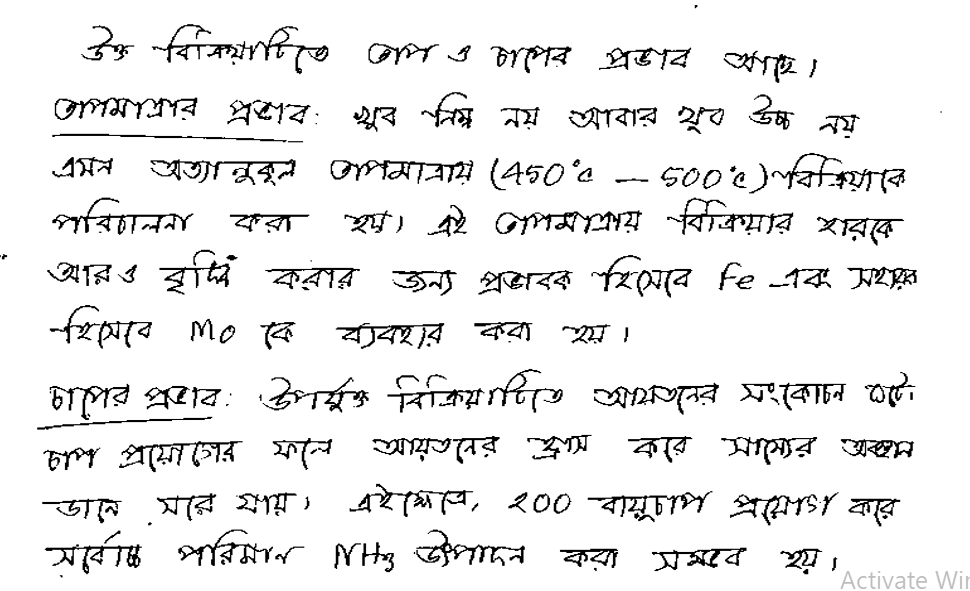 উক্ত বিক্রিয়াটিতে তাপ ও চাপের প্রভাব আছে।
তাপমাত্রার প্রভাব: খুব নিম্ন নয় আবার খুব উচ্চ নয়
এমন অত্যানুকূল তাপমাত্রায় (450°c — 500°c) বিক্রিয়াকে
পরিচালনা করা হয়। এই তাপমাত্রায় বিক্রিয়ার হারকে
আরও বৃদ্ধি করার জন্য প্রভাবক হিসেবে Fe এবং সহায়ক
হিসেবে Mo কে ব্যবহার করা হয়।
চাপের প্রভাব: উপর্যুক্ত বিক্রিয়াটিতে আয়তনের সংকোচন ঘটে।
চাপ প্রয়োগের ফলে আয়তনের হ্রাস করে সাম্যের অবস্থান
ডানে সরে যায়। এইক্ষেত্রে, ২00 বায়ুচাপ প্রয়োগ করে
সর্বোচ্চ পরিমান NH3 উৎপাদন করা সম্ভব হয়।
Activate Wi